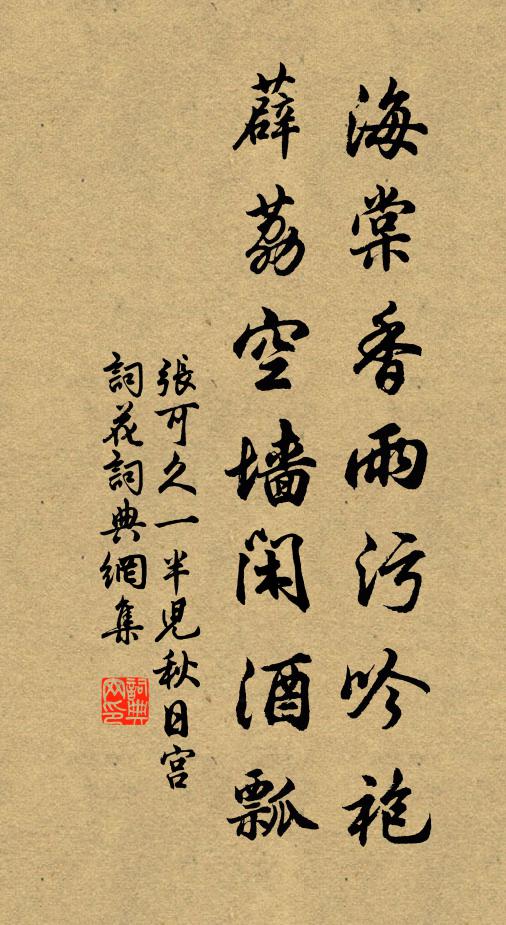 海棠香雨污吟袍
薜荔空墻閑酒瓢
張可久一半兒秋日宮
詞花詞典網集
詞典網印